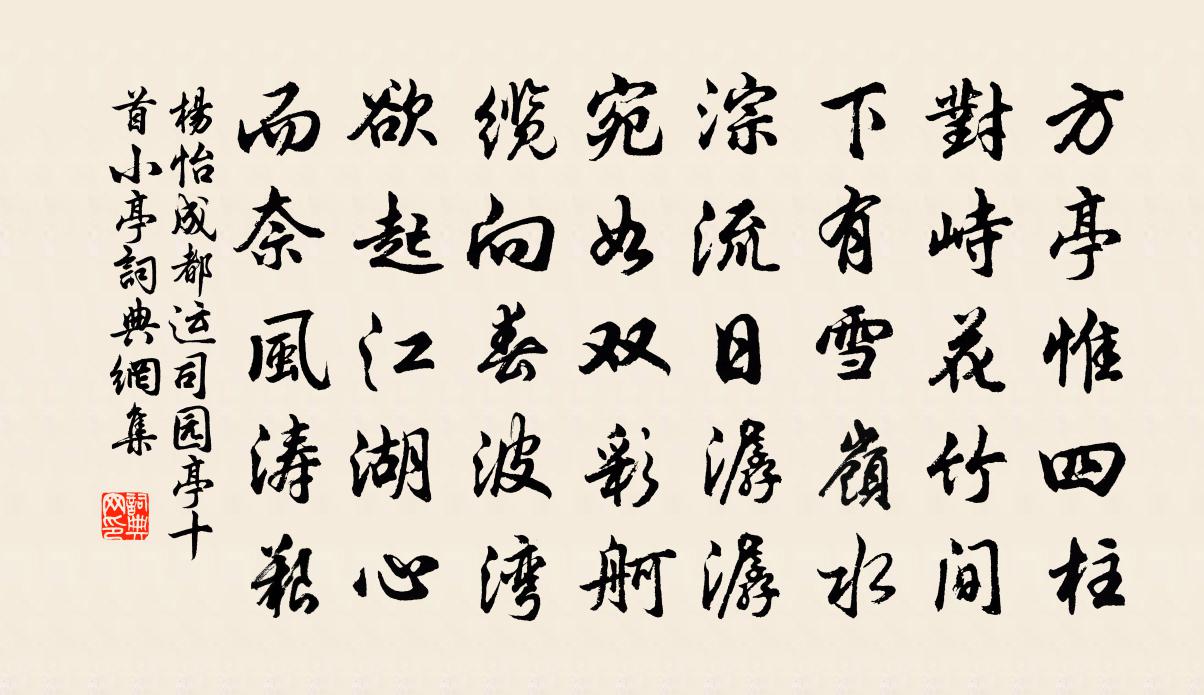 方亭惟四柱
對峙花竹間
下有雪嶺水
淙流日潺潺
宛如双彩舸
缆向春波湾
欲起江湖心
而奈風涛艱
楊怡成都运司园亭十
首小亭詞典網集
詞典网印